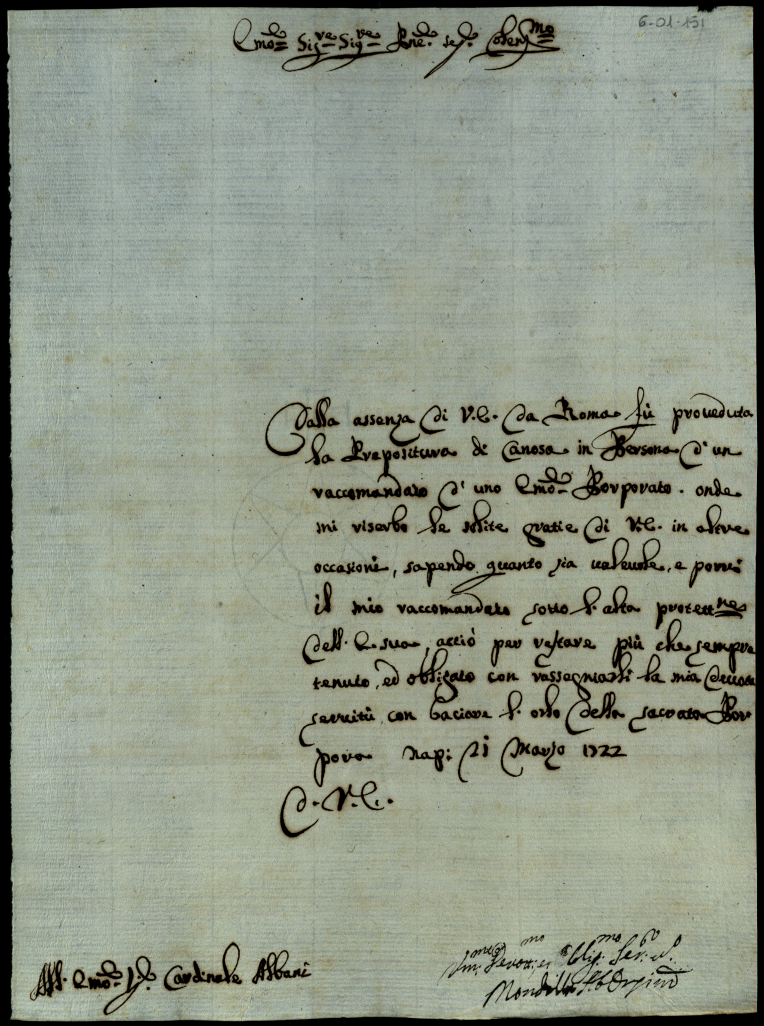 6-01-151
Emo Sigre Sigre Pne Colendmo
Dalla assenza di V.E. da Roma fù proveduta
la Prepositura di Canosa in Persona d'un
raccomandato d'uno Emo Porporato. onde
mi riserbo le solite gratie di V.E. in altre
occasioni, sapendo quanto sia valevole, e porrei
il mio raccomandato sotto l'alta protettne
dell'E. sua, acciò per restare più che sempre
tenuto, ed obligato con rassegnarli la mia devota
servitù con baciare l'orlo della sacrata Por
pora Nap: 21 Marzo 1722
D. V.E.
All' Emo Sr Cardinale Albani
Mondilla Orsini